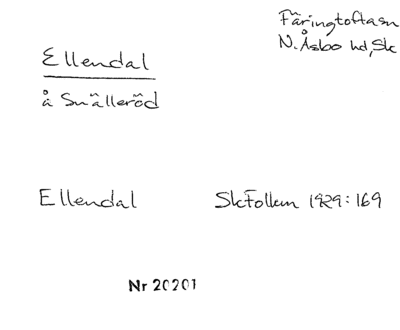 Färingtoftasn
N. Åsbo hd, Sk
Ellendal
å Snälleröd
Ellendal SkFolkm 1929:169
Nr 20201